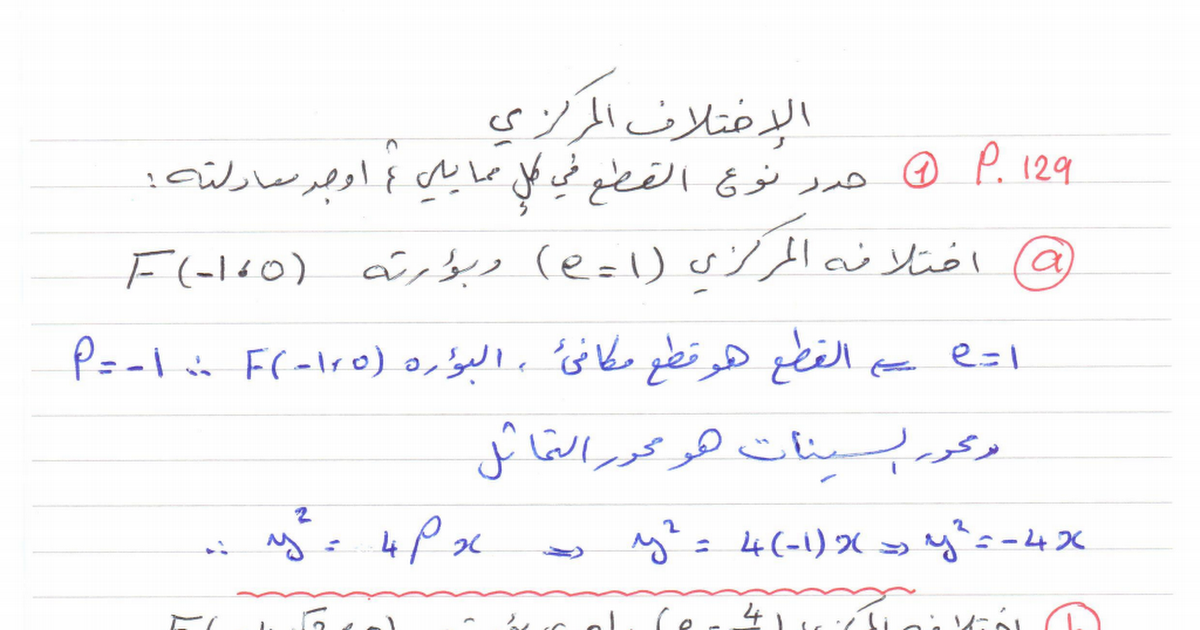 الإختلاف المركزي
P. 129 ① حدد نوع القطع في كلٍ مما يلي ثم أوجد معادلته :
ⓐ اختلافه المركزي (e = 1) وبؤرته F(-1،0)
e = 1 ⇐ القطع هو قطع مكافئ ، البؤره F(-1،0) ∴ P = -1
ومحور السينات هو محور التماثل
∴ y² = 4Px ⇒ y² = 4(-1)x ⇒ y² = -4x
ⓑ اختلافه المركزي